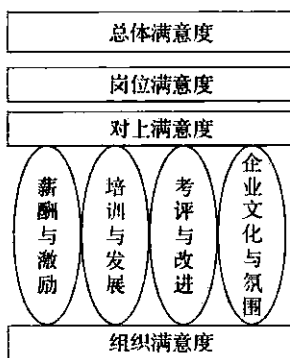 总体满意度
岗位满意度
对上满意度
薪酬与激励
培训与发展
考评与改进
企业文化与氛围
组织满意度